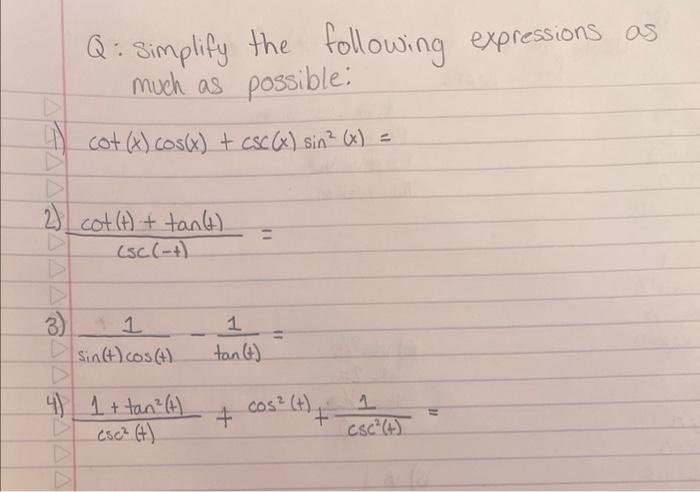 Q: simplify the following expressions as
much as possible:
1) cot(x) cos(x) + csc(x) sin²(x) =
2) cot(t) + tan(t) / csc(-t) =
3) 1 / sin(t) cos(t) - 1 / tan(t) =
4) 1 + tan²(t) / csc²(t) + cos²(t) + 1 / csc²(t) =